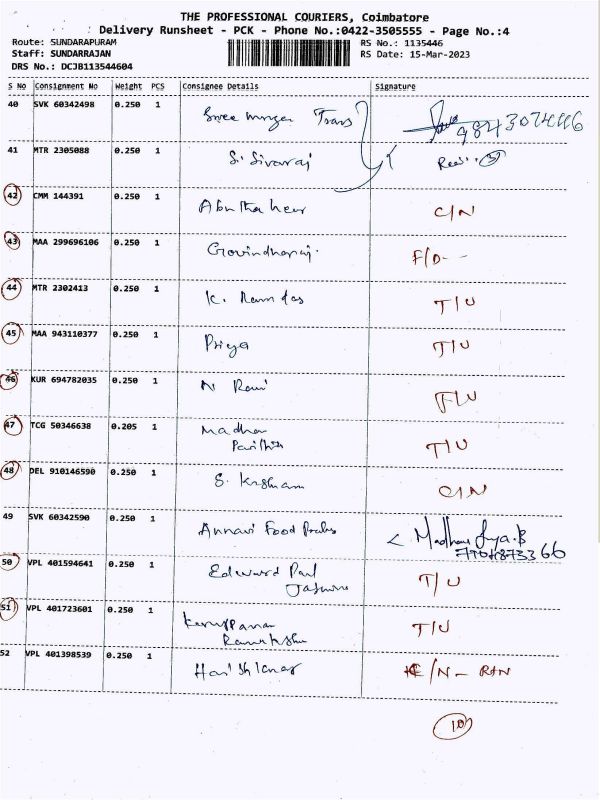 THE PROFESSIONAL COURIERS, Coimbatore
Delivery Runsheet - PCK - Phone No.:0422-3505555 - Page No.:4
Route: SUNDARAPURAM
RS No.: 1135446
Staff: SUNDARRAJAN
RS Date: 15-Mar-2023
DRS No.: DCJB113544604
S No Consignment No Weight PCS Consignee Details Signature
40 SVK 60342498 0.250 1 Trans
41 MTR 2305088 0.250 1 S. Sivaraj
42 CMM 144391 0.250 1 C/N
43 MAA 299696106 0.250 1 Govindharaj. F/D--
44 MTR 2302413 0.250 1 K. Ramdas T/U
45 MAA 943110377 0.250 1 Priya T/U
46 KUR 694782035 0.250 1 N Ravi
47 TCG 50346638 0.205 1 Madhan T/U
48 DEL 910146590 0.250 1 S.
49 SVK 60342590 0.250 1 Annavi Food
50 VPL 401594641 0.250 1 Edward Paul T/U
51 VPL 401723601 0.250 1 T/U
52 VPL 401398539 0.250 1 /N - RTN
10